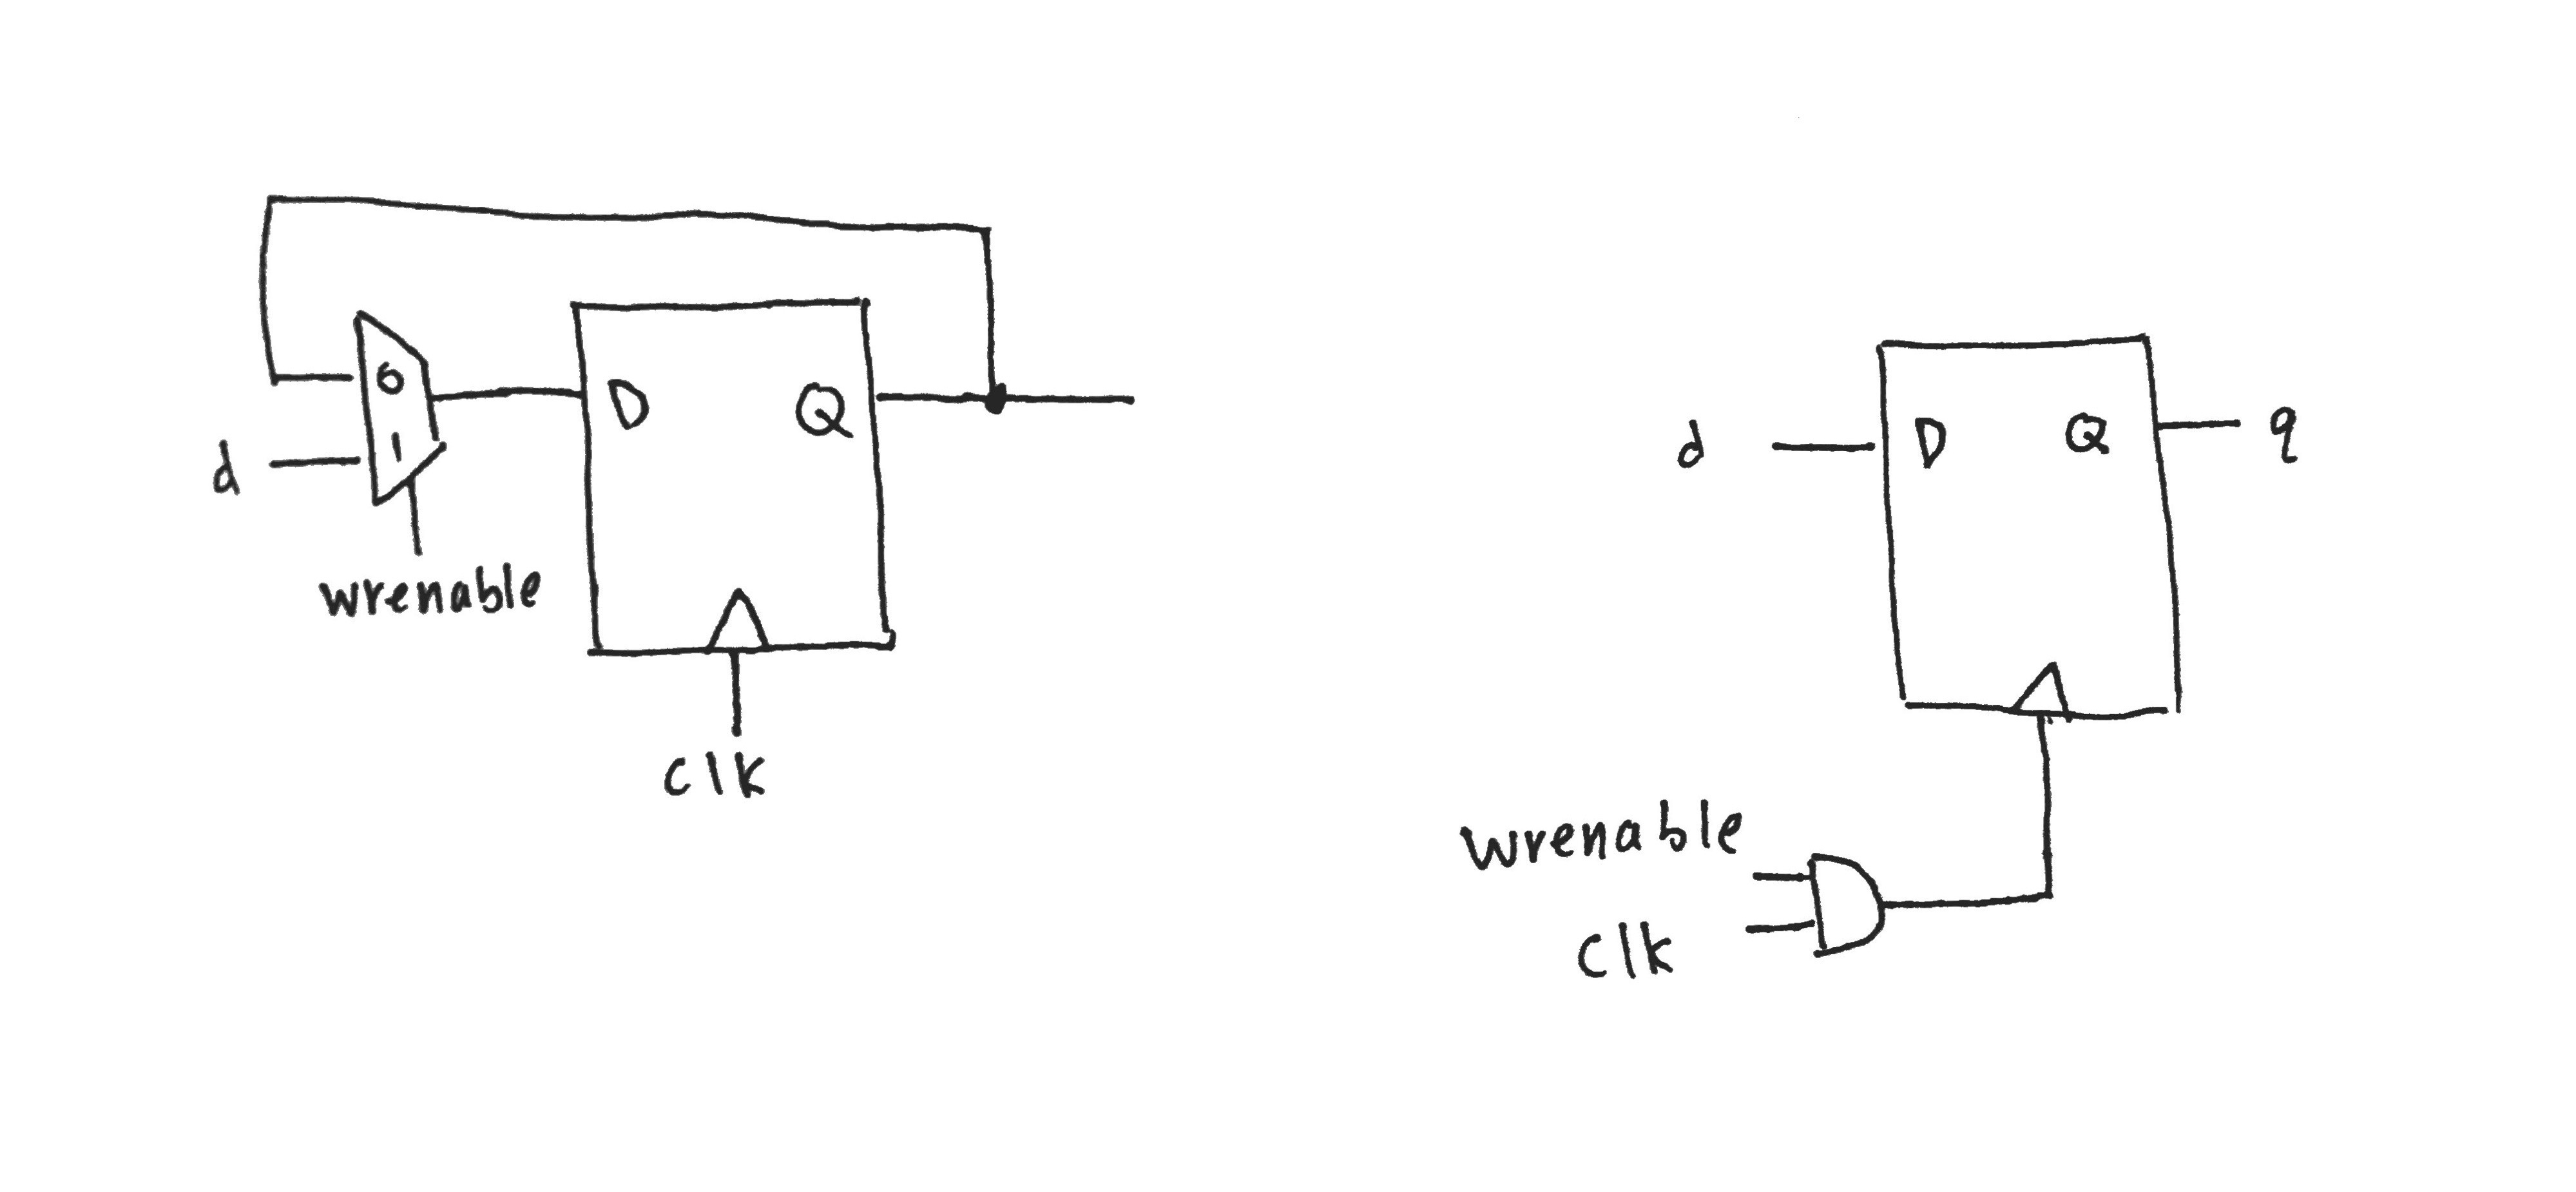 0
1
D Q
d
wrenable
clk
d D Q q
wrenable
clk